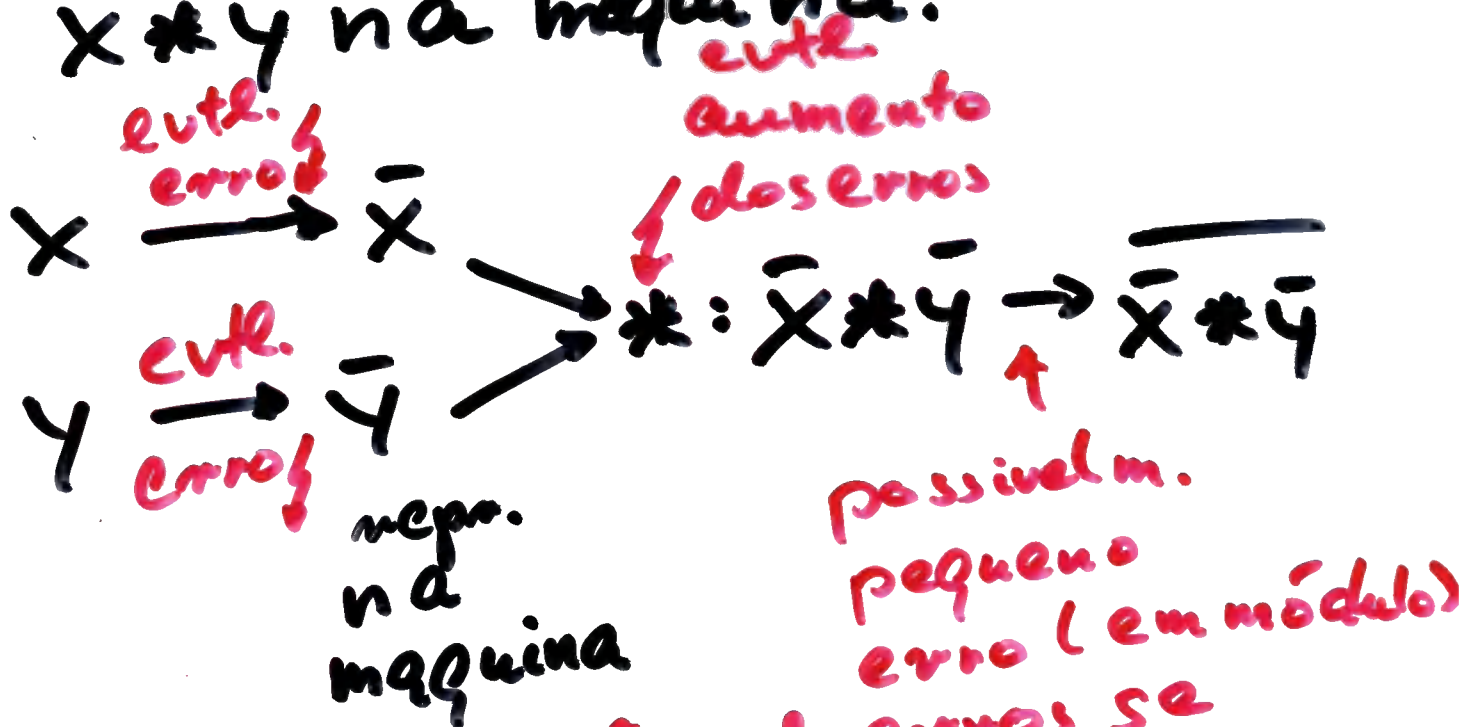 x * y na maquina.
evtl. erro
evtl. aumento dos erros
x → x̄
* : x̄ * ȳ → x̄ * ȳ
evtl. erro
y → ȳ
repr.
na
maquina
possivelm.
pequeno
erro (em módulo)
erros se